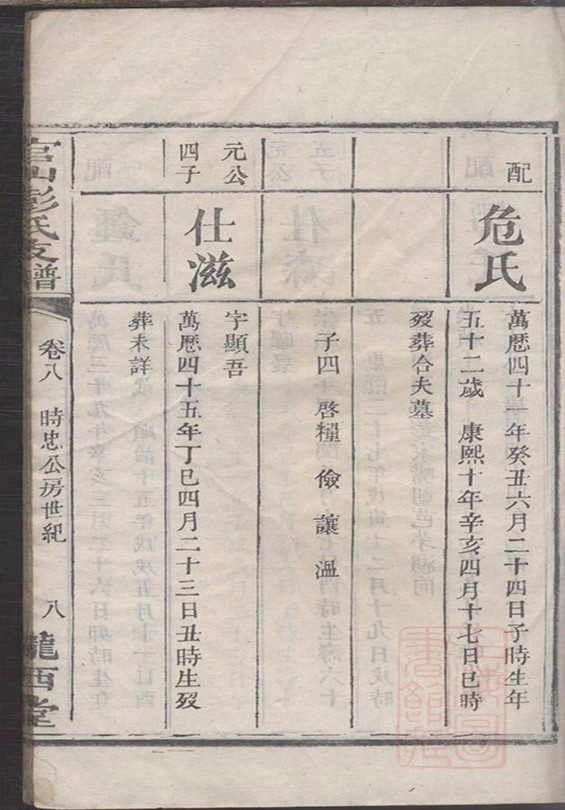 配
危氏
萬曆四十一年癸丑六月二十四日子時生年
五十二歲 康熙十年辛亥四月十七日巳時
歿葬合夫墓
子四 啓糧 儉 讓 溫
元公
四子
仕滋
字顯吾
萬曆四十五年丁巳四月二十三日丑時生歿
葬未詳
官山彭氏支譜
卷八 時忠公房世紀
八
隴西堂